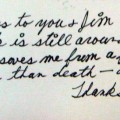 s to you & Jim
is still aroun
saves me from a
than death —
Thanks